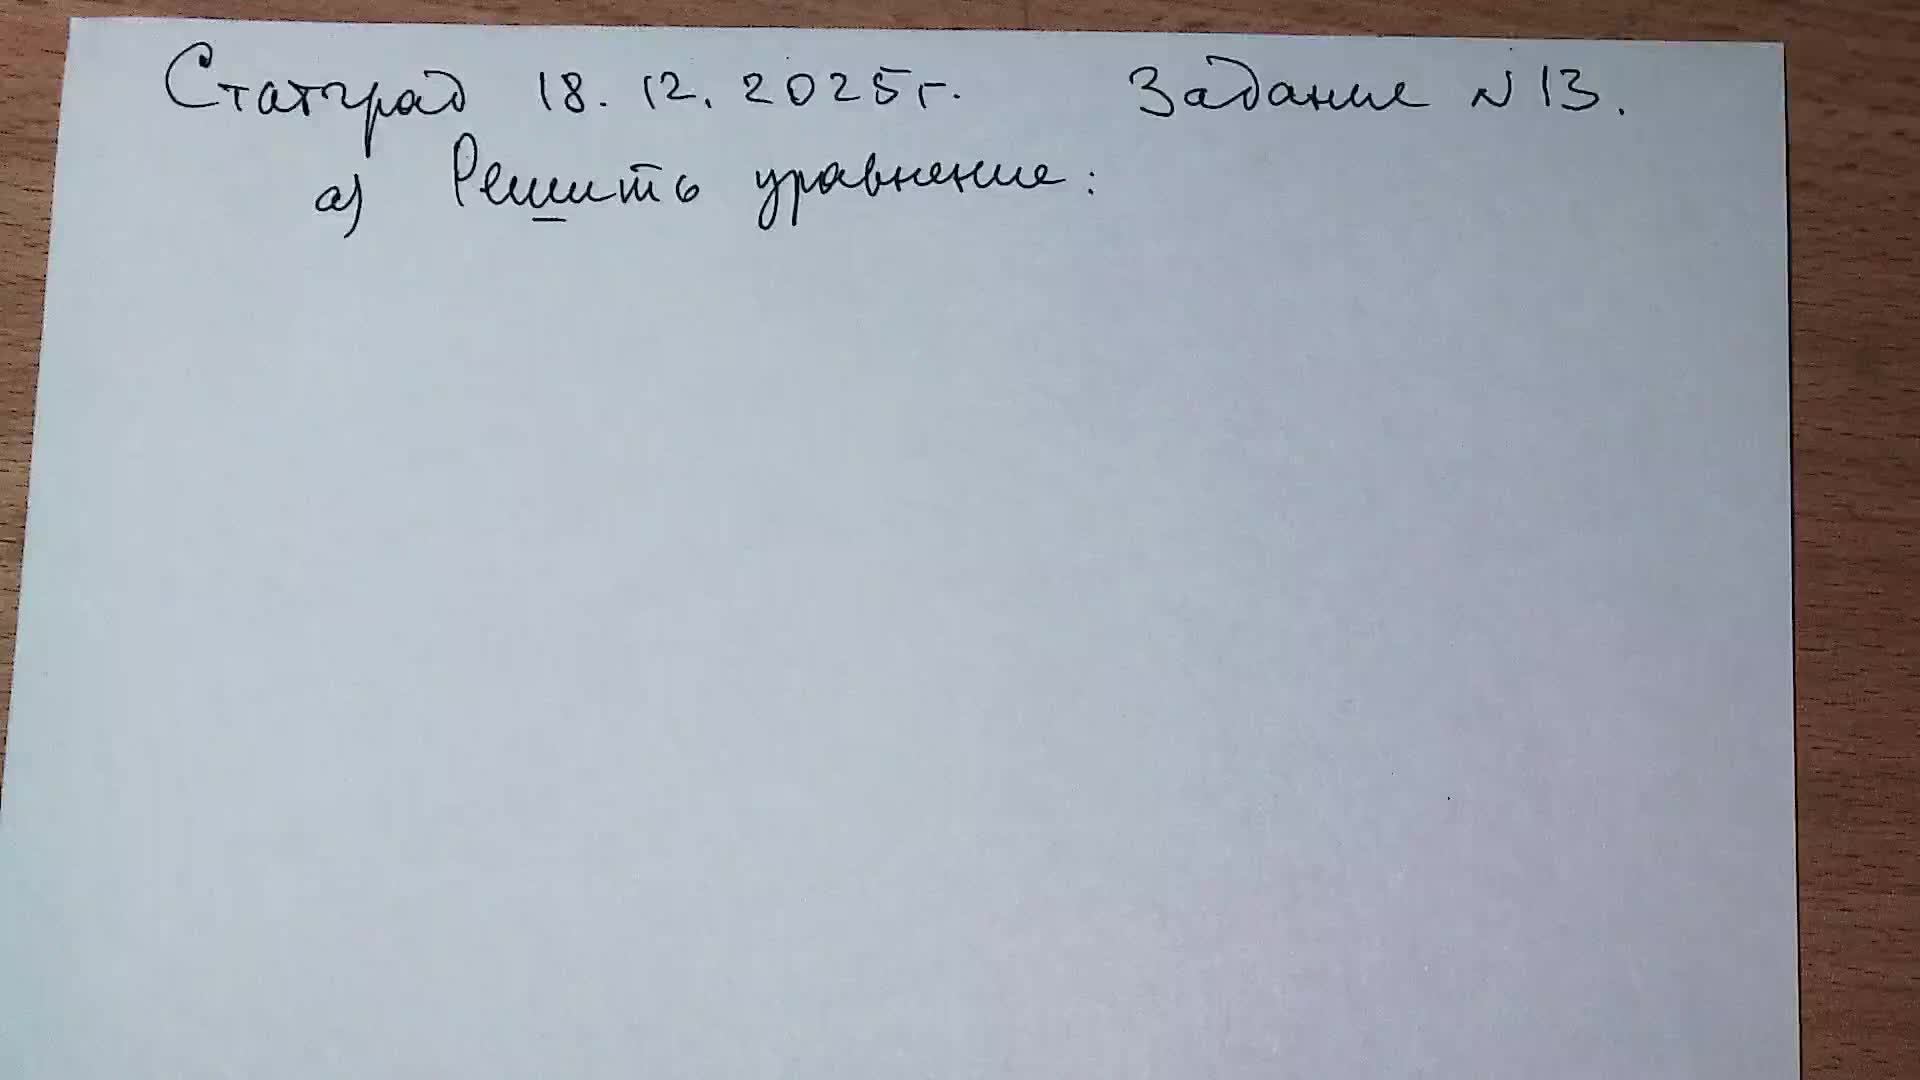 Статград 18.12.2025г. Задание №13.
а) Решить уравнение: